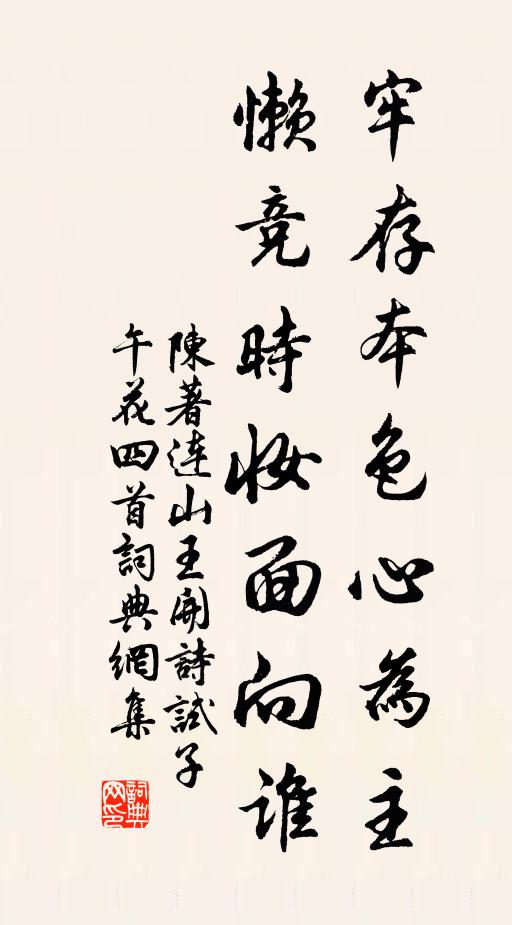 牢存本色心為主
懶竞時妝面向誰
陳著連山王開詩試子
午花四首詞典網集
詞典網印